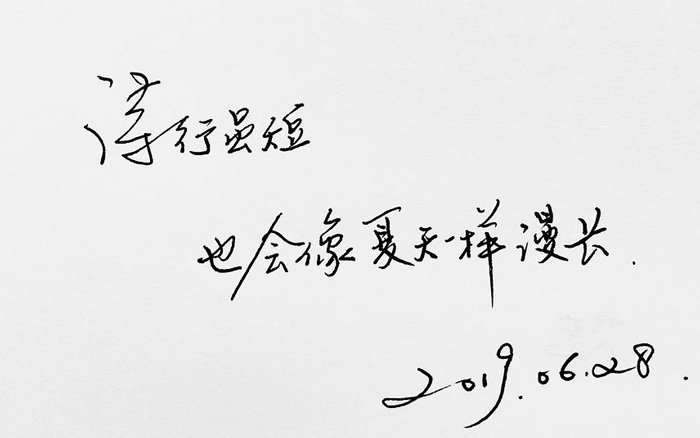 诗行虽短
也会像夏天一样漫长.
2019.06.28.